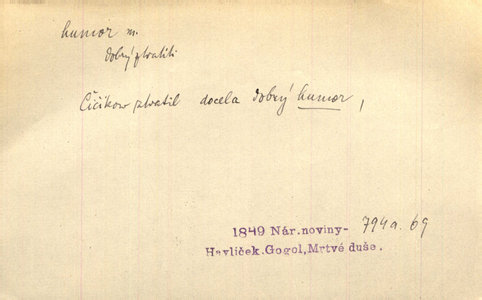 humor m.
dobrý ztratiti
Čičikow ztratil docela dobrý humor,
1849 Nár.noviny- 794a. 69
Havlíček.Gogol,Mrtvé duše.